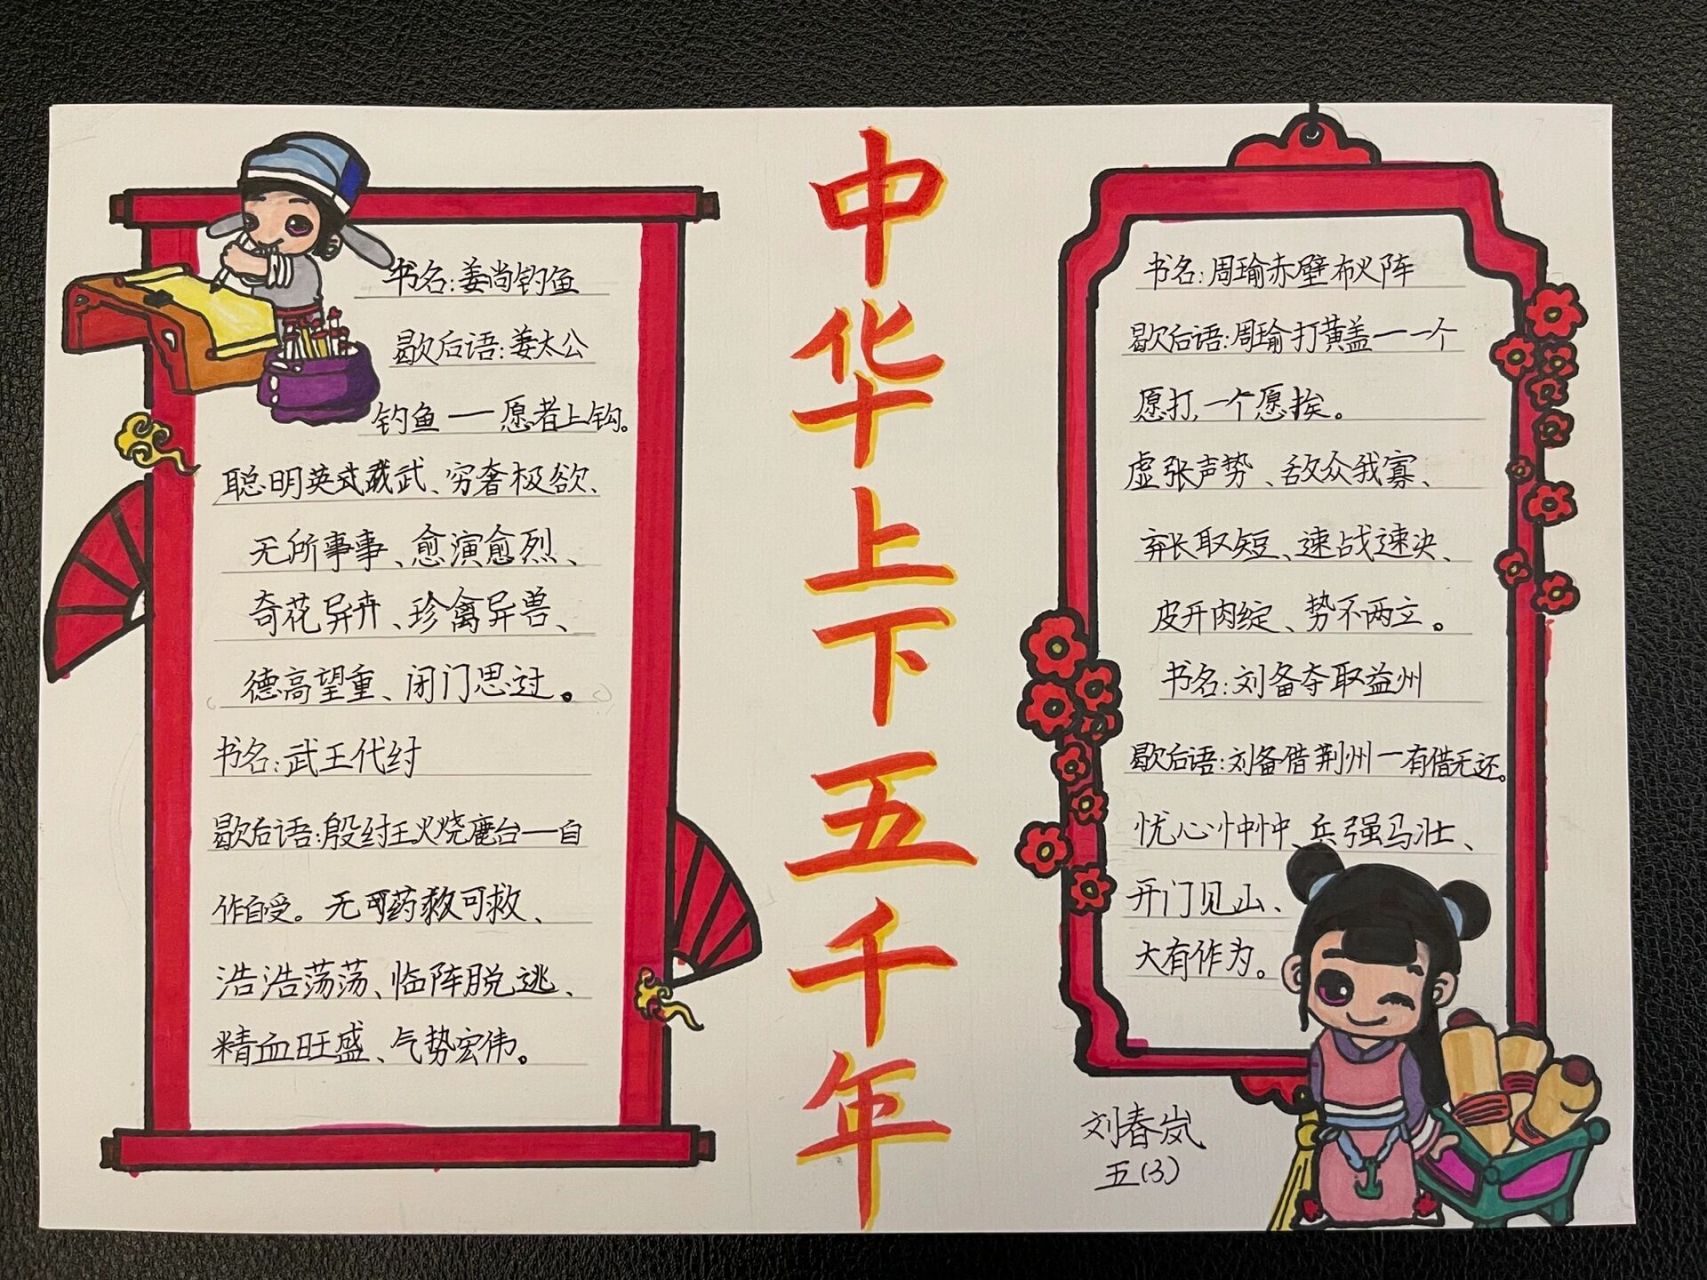 中华上下五千年
书名:姜尚钓鱼
歇后语:姜太公
钓鱼一愿者上钩。
聪明英武、穷奢极欲、
无所事事、愈演愈烈、
奇花异卉、珍禽异兽、
德高望重、闭门思过。
书名:武王代纣
歇后语:殷纣王火烧鹿台一自
作自受。无可药救可救、
浩浩荡荡、临阵脱逃、
精血旺盛、气势宏伟。
书名:周瑜赤壁布火阵
歇后语:周瑜打黄盖一一个
愿打,一个愿挨。
虚张声势、敌众我寡、
弃长取短、速战速决、
皮开肉绽、势不两立。
书名:刘备夺取益州
歇后语:刘备借荆州一有借无还。
忧心忡忡、兵强马壮、
开门见山、
大有作为。
刘春岚
五(3)